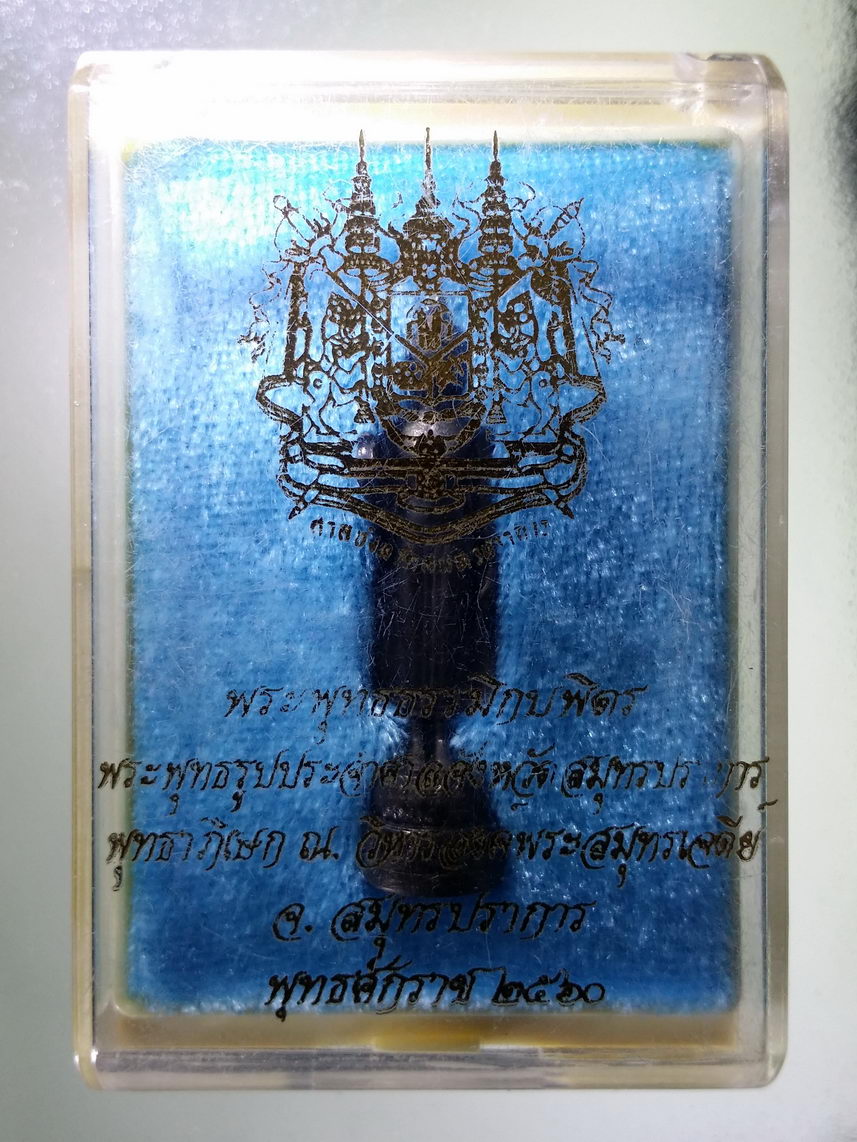 ศาลจังหวัดสมุทรปราการ
พระพุทธธรรมิกบพิตร
พระพุทธรูปประจำศาลจังหวัดสมุทรปราการ
พุทธาภิเษก ณ. พระสมุทรเจดีย์
จ. สมุทรปราการ
พุทธศักราช ๒๕๖๐